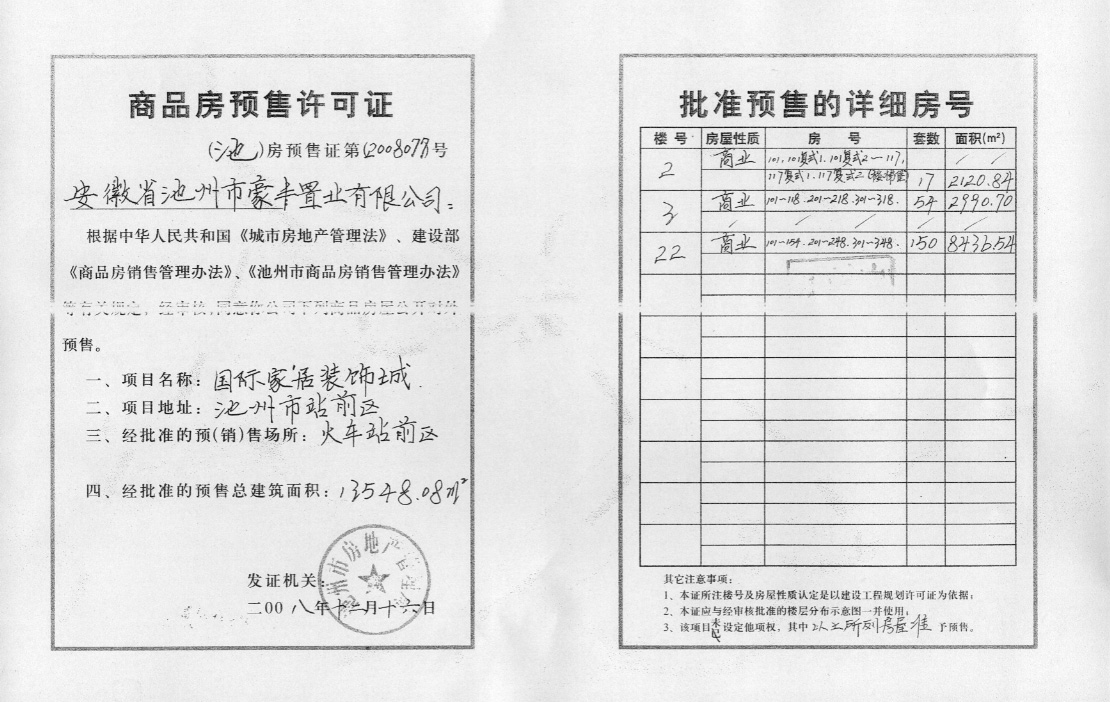 商品房预售许可证
(池)房预售证第(2008077号
安徽省池州市豪丰置业有限公司:
根据中华人民共和国《城市房地产管理法》、建设部
《商品房销售管理办法》、《池州市商品房销售管理办法》
等有关规定,经审核,同意你公司下列商品房屋公开对外
预售。
一、项目名称:国际家居装饰城.
二、项目地址:池州市站前区
三、经批准的预(销)售场所:火车站前区
四、经批准的预售总建筑面积:13548.08m²
池州市房地产管理局
发证机关:
二00八年十二月十六日
批准预售的详细房号
楼号 房屋性质 房号 套数 面积(m²)
2 商业 101.101复式1.101复式2—117. / /
117复式1.117复式2(楼梯间) 17 2120.84
3 商业 101-118.201-218.301-318. 54 2990.70
/ / / /
22 商业 101-154.201-248.301-348. 150 8436.54
其它注意事项:
1、本证所注楼号及房屋性质认定是以建设工程规划许可证为依据;
2、本证应与经审核批准的楼层分布示意图一并使用;
3、该项目未已设定他项权,其中以上所列房屋准予预售。